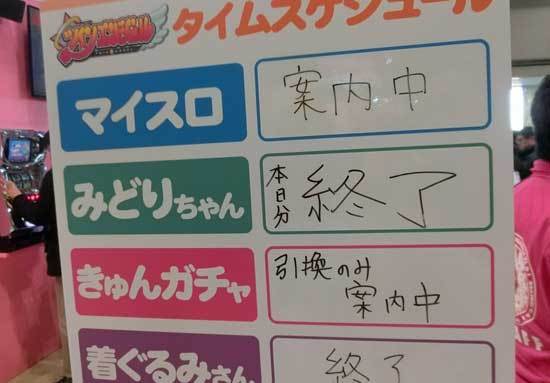 タイムスケジュール
マイスロ
案内中
みどりちゃん
本日分
終了
きゅんガチャ
引換のみ
案内中
着ぐるみさん
終了